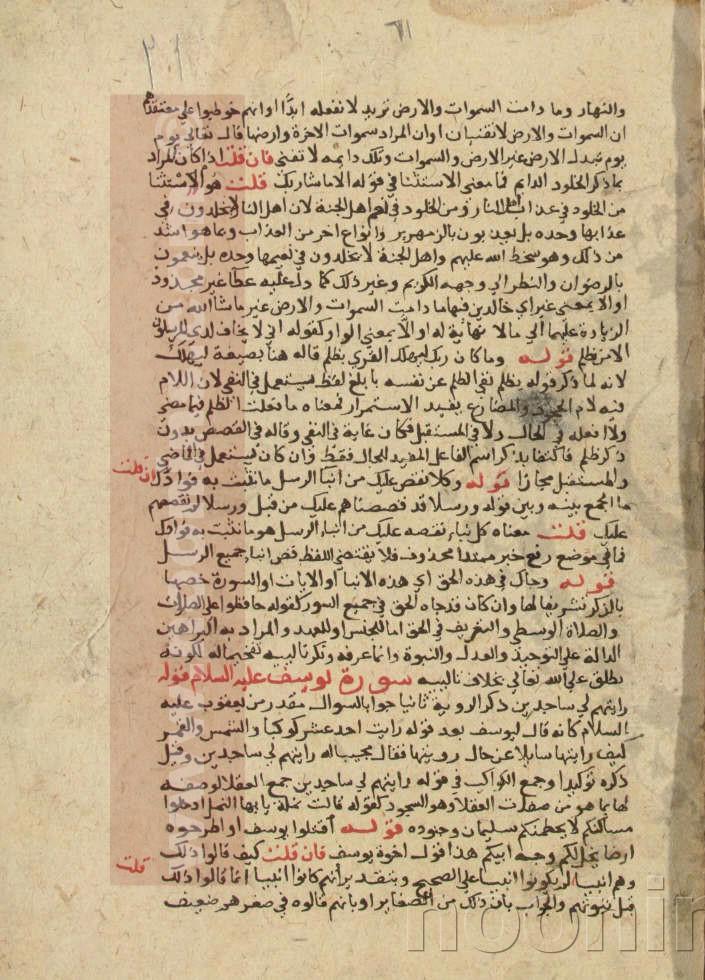 والنهار وما دامت السموات والارض تريد لا نفعله ابدًا او انهم خوطبوا على معتقدهم
ان السموات والارض لا تفنيان او ان المراد سموات الاخرة وارضها قال تعالى يوم
يوم تبدل الارض غير الارض والسموات وتلك دايمه لا تفنى فان قلت اذا كان المراد
بما ذكر الخلود الدايم فما معنى الاستثنا في قوله الا ما شا ربك قلت هو الاستثنا
من الخلود في عذاب اهل النار ومن الخلود في نعيم اهل الجنة لان اهل النار لا يخلدون في
عذابها وحده بل يعذبون بالزمهرير وانواع اخر من العذاب وبما هو اشد
من ذلك وهو سخط الله عليهم واهل الجنة لا يخلدون في نعيمها وحده بل ينعمون
بالرضوان والنظر الى وجهه الكريم وغير ذلك كما دل عليه عطا غير مجذوذ
او الا بمعنى غير اي خالدين فيها ما دامت السموات والارض غير ما شا الله من
الزيادة عليهما الى ما لا نهاية له او الا بمعنى الواو كقوله اني لا يخاف لدي المرسلون
الا من ظلم قوله وما كان ربك ليهلك القرى بظلم قاله هنا بصيغة ليهلك
لانه لما ذكر قوله بظلم نفى الظلم عن نفسه بابلغ لفظ يستعمل في النفى لان اللام
فيه لام الجحود والمضارع يفيد الاستمرار فمعناه ما فعلت الظلم فيما مضى
ولا افعله في الحال ولا في المستقبل فكان غاية في النفي وقاله في القصص بدون
ذكر ظلم فاكتفا بذكر اسم الفاعل المفيد للحال فقط وان كان يستعمل في الماضي
والمستقبل مجازا قوله وكلا نقص عليك من انبا الرسل ما نثبت به فوادك ان قلت
ما الجمع بينه وبين قوله ورسلا قد قصصناهم عليك من قبل ورسلا لم نقصصهم
عليك قلت معناه كل نباء نقصه عليك من انباء الرسل هو ما نثبت به فوادك
فما في موضع رفع خبر مبتدا محذوف فلا يقتضي اللفظ قص انباء جميع الرسل
قوله وجاك في هذه الحق اي هذه الانبا او الايات او السورة خصها
بالذكر تشريفا لها وان كان قد جاه الحق في جميع السور كقوله حافظوا على الصلوات
والصلاة الوسطى والتعريف في الحق اما للجنس او للعهد والمراد به البراهين
الدالة على التوحيد والعدل والنبوة وانما عرفه ونكر تالييه تفخيما له لكونه
يطلق على الله تعالى بخلاف تالييه سورة يوسف عليه السلام قوله
رايتهم لي ساجدين ذكر الروية ثانيا جوابا لسوال مقدر من يعقوب عليه
السلام كانه قال ليوسف بعد قوله رايت احد عشر كوكبا والشمس والقمر
كيف رايتها سايلا عن حال رويتها فقال مجيبا له رايتهم لي ساجدين وقيل
ذكره توكيدا وجمع الكواكب في قوله رايتهم لي ساجدين جمع العقلا لوصفه
لها بما هو من صفات العقلا وهو السجود كقوله قالت نملة يا ايها النمل ادخلوا
مساكنكم لا يحطمنكم سليمان وجنوده قوله اقتلوا يوسف او اطرحوه
ارضا يخل لكم وجه ابيكم هذا قول اخوة يوسف فان قلت كيف قالوا ذلك
وهم انبيا قلت لم يكونوا انبيا على الصحيح وبتقدير انهم كانوا انبيا انما قالوا ذلك
قبل نبوتهم والجواب بان ذلك من الصغاير او بانهم قالوه في صغرهم ضعيف
noonir